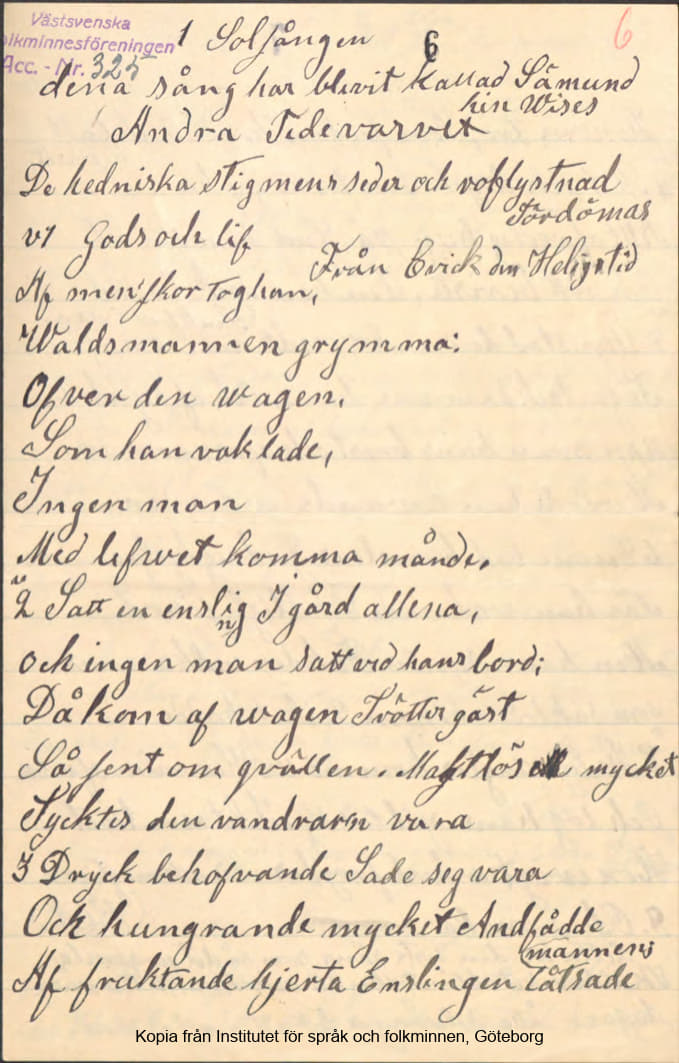 Västsvenska
folkminnesföreningen
Acc. - Nr. 325
6
1 Solsången 6
dena sång har blivit kallad Sämund
hin Wises
Andra Tidevarvet
De hedniska stigmens seder och roflystnad
Fördömas
v1 Gods och lif
Från Erick den Heliges tid
Af menskor tog han,
Waldsmannen grymma:
Ofver den wagen,
Som han vaktade,
Ingen man
Med lifwet komma månde.
v
2 Satt en enslig I gård allena,
n
och ingen man satt ved hans bord;
Då kom af wagen Tvötter gäst
Så sent om qvällen. Maktlös mycket
Tycktes den vandraren vara
3 Dryck behofvande Sade seg vara
Och hungrande mycket Andfådde
mannen;
Af fruktande hjerta Enslingen Låtsade
Kopia från Institutet för språk och folkminnen, Göteborg